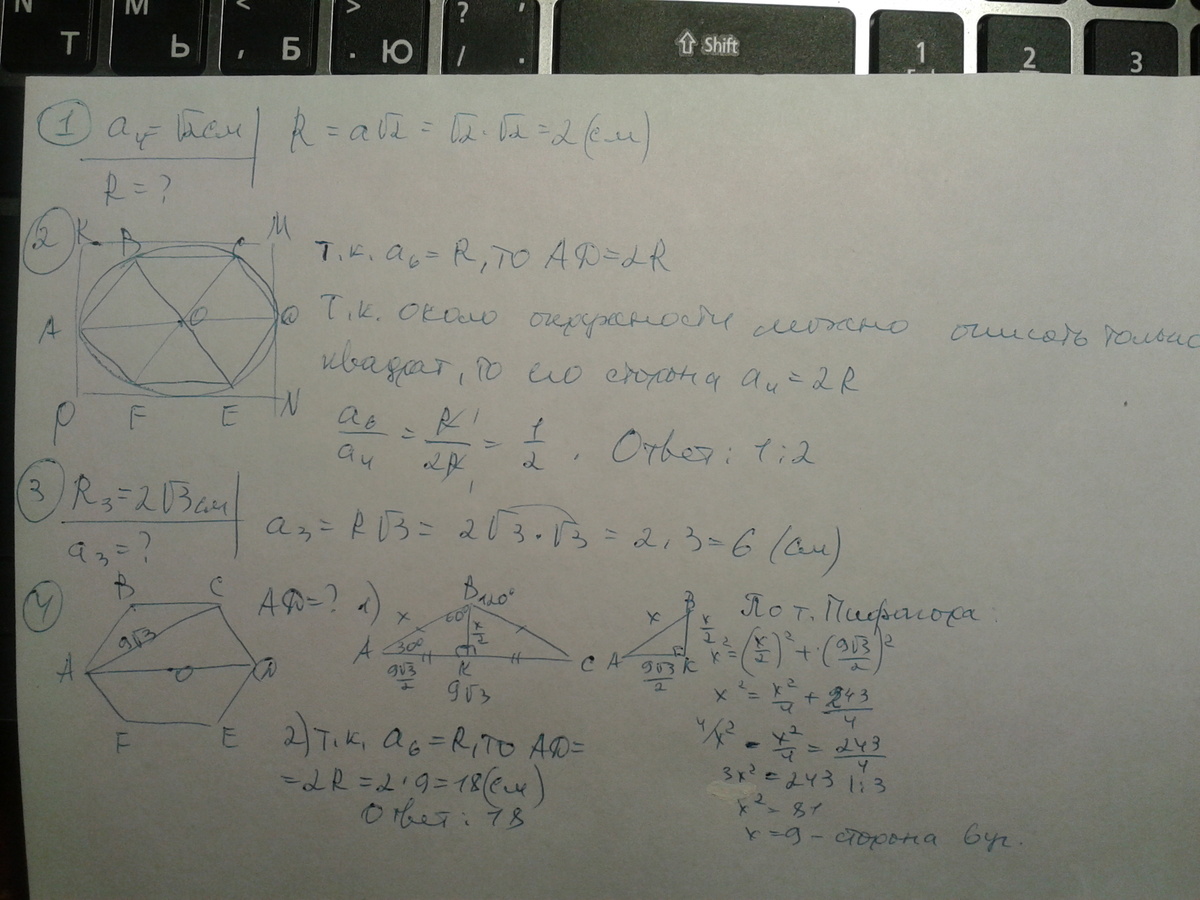 N T
M Ь
< , Б
> . Ю
? ' / .
⇧ Shift
1
2
3
1 a₄ = √2 см R = a√2 = √2 · √2 = 2 (см)
R = ?
2 K B C M
A O D
P F E N
т.к. a₆ = R, то AD = 2R
Т.к. около окружности можно описать только
квадрат, то его сторона a₄ = 2R
a₆/a₄ = R/2R = 1/2 . Ответ: 1:2
3 R₃ = 2√3 см a₃ = R√3 = 2√3 · √3 = 2 · 3 = 6 (см)
a₃ = ?
4 B C
A 9√3 O D
F E
AD = ? 1)
B 120°
x 60° x/2
A 30° K C
9√3/2 9√3
B
x x/2
A 9√3/2 K
По т. Пифагора:
x² = (x/2)² + (9√3/2)²
x² = x²/4 + 243/4
4/x² - x²/4 = 243/4
3x² = 243 | : 3
x² = 81
x = 9 - сторона 6уг.
2) т.к. a₆ = R, то AD =
= 2R = 2 · 9 = 18 (см)
Ответ: 18